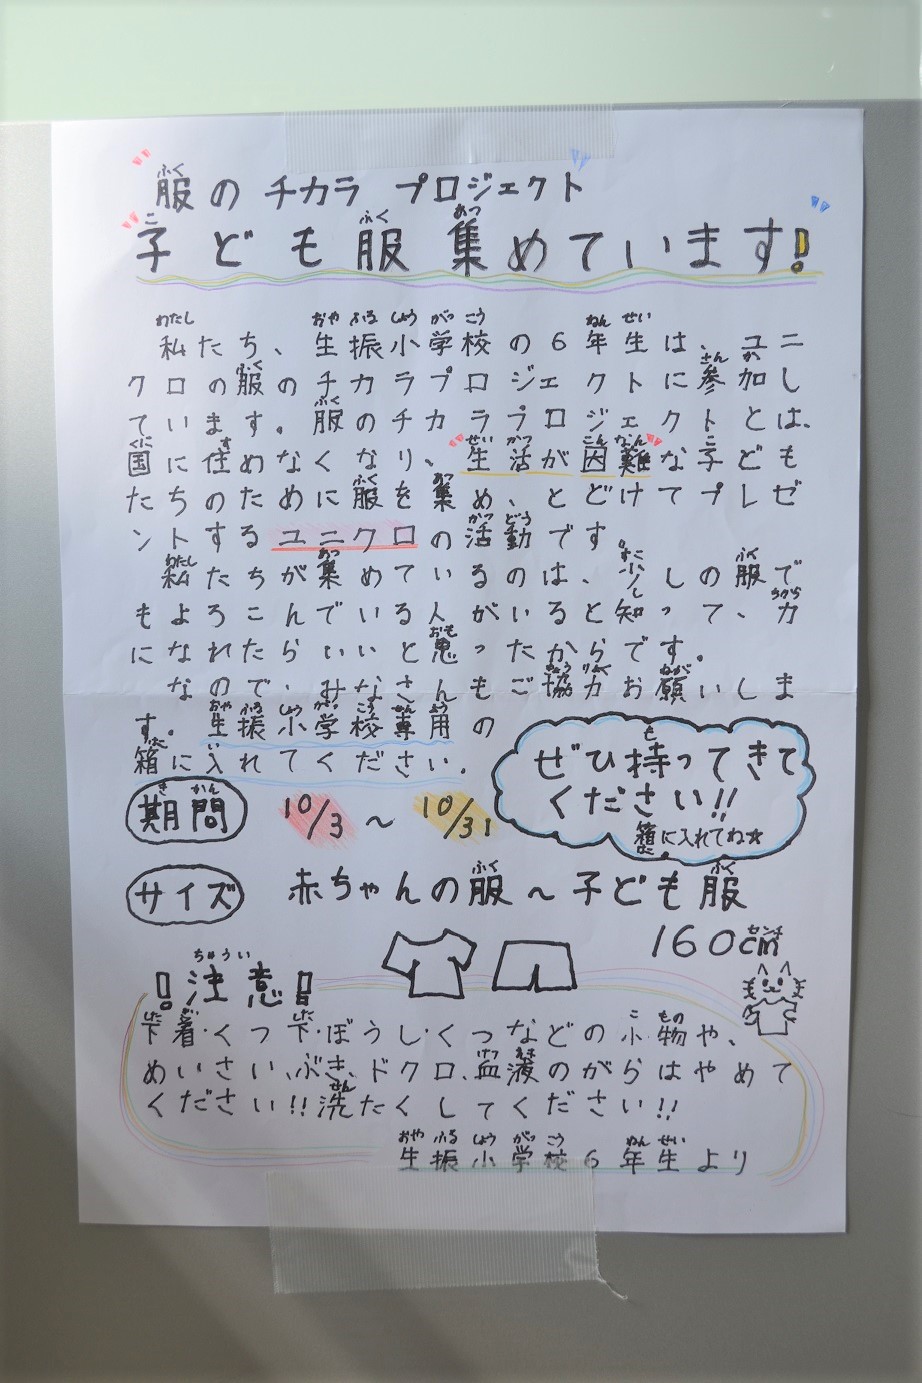 服のチカラ プロジェクト
子ども服集めています!
私たち、生振小学校の6年生は、ユニ
クロの服のチカラプロジェクトに参加し
ています。服のチカラプロジェクトとは、
国に住めなくなり、生活が困難な子ども
たちのために服を集め、とどけてプレゼ
ントするユニクロの活動です
私たちが集めているのは、少しの服で
もよろこんでいる人がいると知って、力
になれたらいいと思ったからです。
なので、みなさんもご協力お願いしま
す。生振小学校専用の
箱に入れてください。
ぜひ持ってきて
ください!!
箱に入れてね☆
期間 10/3～10/31
サイズ 赤ちゃんの服～子ども服
160cm
!注意!
下着・くつ下・ぼうし・くつなどの小物や、
めいさい、ぶき、ドクロ、血液のがらはやめて
ください!!洗たくしてください!!
生振小学校6年生より